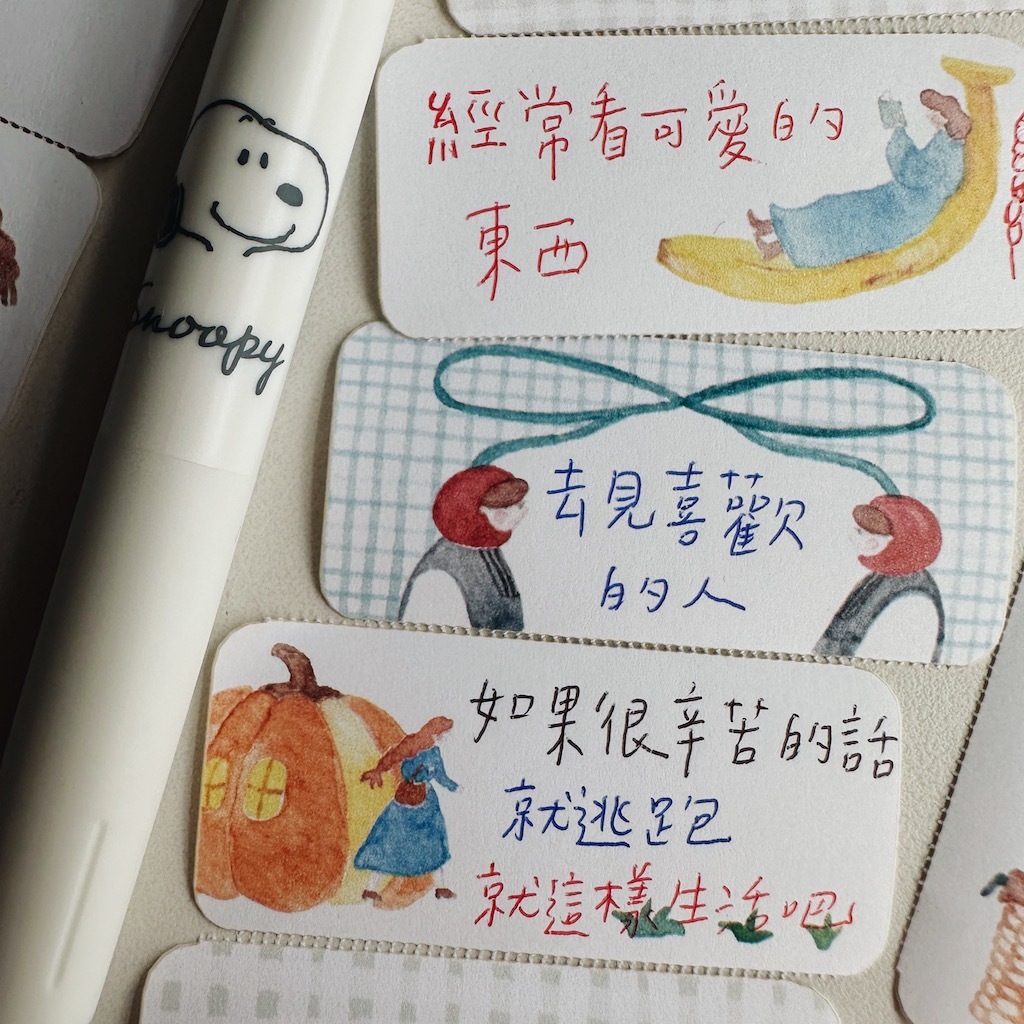 Snoopy
經常看可愛的
東西
去見喜歡
的人
如果很辛苦的話
就逃跑
就這樣生活吧